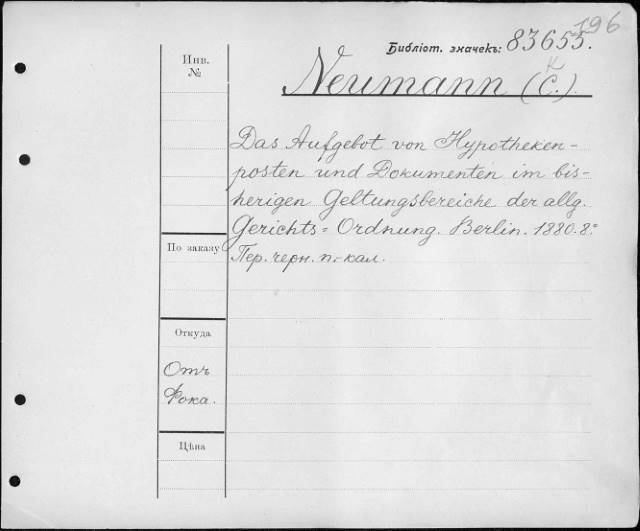 196
Библіот. значекъ: 83655.
Инв.
№
K
Neumann (C.)
Das Aufgebot von Hypotheken-
posten und Dokumenten im bis-
herigen Geltungsbereiche der allg.
Gerichts=Ordnung. Berlin. 1880. 8º
По заказу
Пер. черн. п.-кал.
Откуда
Отъ
Фока.
Цѣна